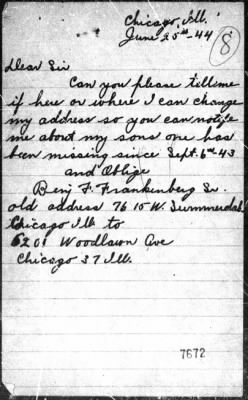 Chicago, Ill.
June 25th-44
8
Dear Sir
Can you please till me
if here or where I can change
my address so you can notify
me about my sons one has
been missing since Sept. 6th 43
and Oblige
Benj. F. Frankenberg Sr.
old address 7615 W. Summerdale
Chicago Ill to
6201 Woodlawn Ave
Chicago 37 Ill.
7672